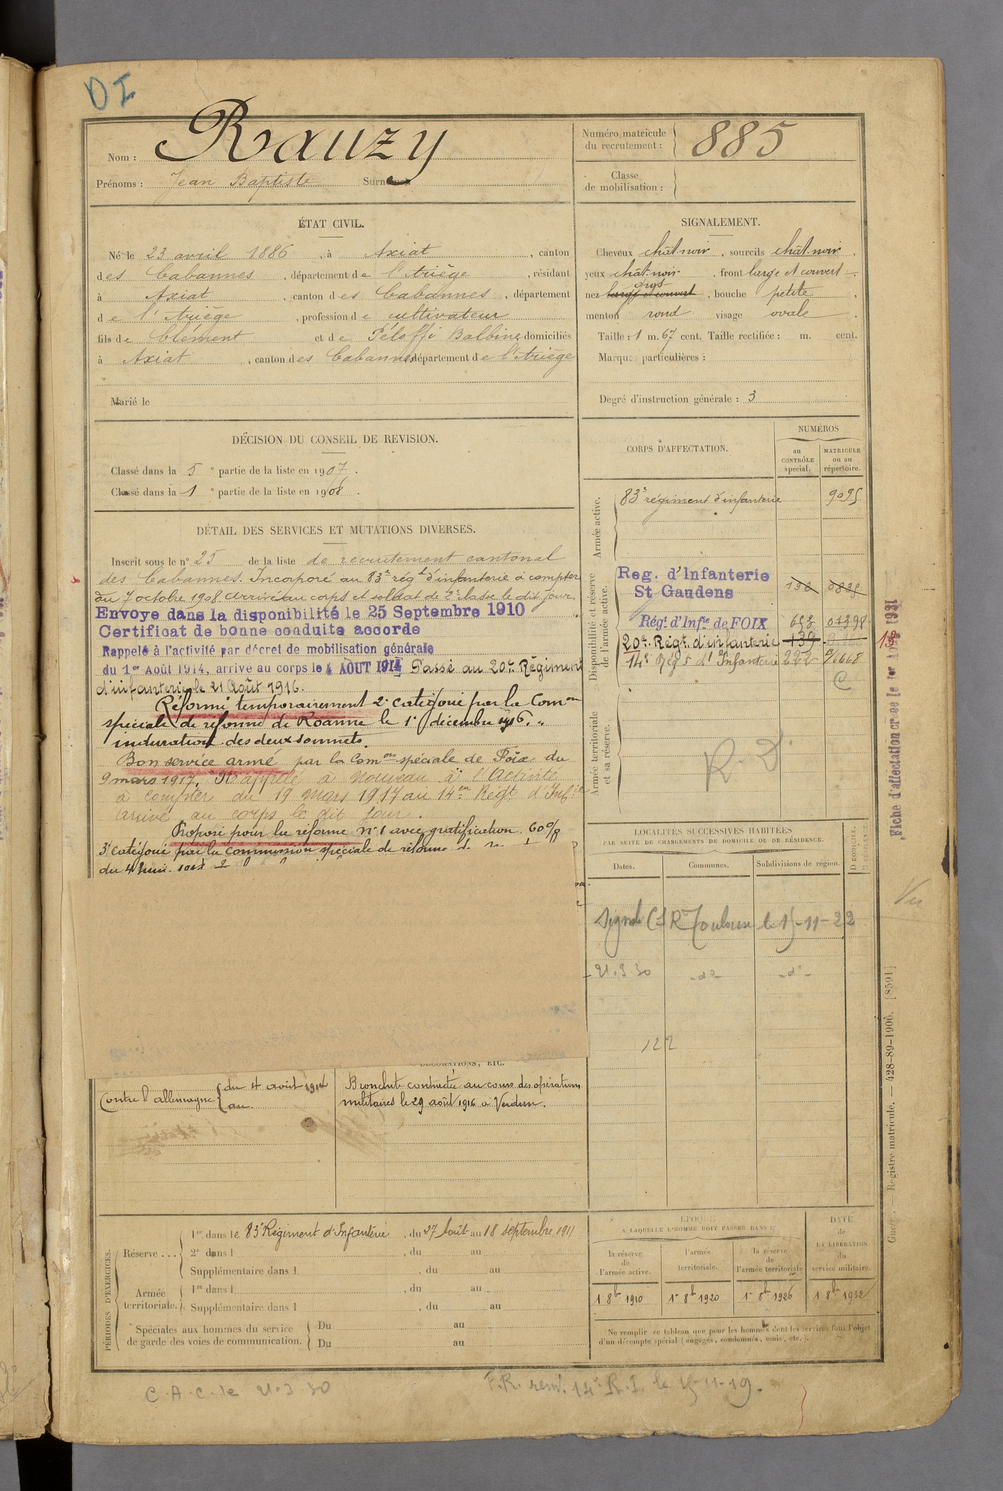 DI
Nom : Rauzy
Prénoms : Jean Baptiste Surnoms
Numéro matricule du recrutement : 885
Classe de mobilisation :
ÉTAT CIVIL.
Né le 23 avril 1886, à Axiat, canton
des Cabannes, département de l'Ariège, résidant
à Axiat, canton des Cabannes, département
de l'Ariège, profession de cultivateur
fils de Clément et de Péloffi Balbine domiciliés
à Axiat, canton des Cabannes, département de l'Ariège
Marié le
SIGNALEMENT.
Cheveux chât-noir, sourcils chât-noir,
yeux chât-noir, front large et couvert
nez gros large et couvert, bouche petite,
menton rond visage ovale.
Taille : 1 m. 67 cent. Taille rectifiée : m. cent.
Marques particulières :
Degré d'instruction générale : 3
DÉCISION DU CONSEIL DE REVISION.
Classé dans la 5e partie de la liste en 1907.
Classé dans la 1e partie de la liste en 1908.
DÉTAIL DES SERVICES ET MUTATIONS DIVERSES.
Inscrit sous le n° 25 de la liste de recrutement cantonal
des Cabannes. Incorporé au 83e régt d'infanterie à compter
du 7 octobre 1908. Arrivé au corps et soldat de 2e classe le dit jour.
Envoye dans la disponibilité le 25 Septembre 1910
Certificat de bonne conduite accorde
Rappelé à l'activité par décret de mobilisation générale
du 1er Août 1914, arrive au corps le 4 AOUT 1914 Passé au 20e Régiment
d'infanterie le 21 Août 1916.
Réformé temporairement 2e catégorie par la Comon
spéciale de réforme de Roanne le 1er décembre 1916.
induration des deux sommets.
Bon service armé par la Comon spéciale de Foix du
9 mars 1917. Rappelé à nouveau à l'activité
à compter du 19 mars 1917 au 14me Régt d'Infie
arrivé au corps le dit jour.
Proposé pour la réforme n° 1 avec gratification 60%
3e catégorie par la commission spéciale de réforme
du 4 juin
CORPS D'AFFECTATION.
NUMÉROS
au CONTRÔLE spécial.
MATRICULE ou au répertoire.
Armée active.
83e régiment d'infanterie 9095
Disponibilité et réserve de l'armée active.
Reg. d'Infanterie
St Gaudens
Régt d'Infie de FOIX 653 01398
20e Régt d'infanterie 139
14e Régt d'Infanterie 222
Armée territoriale et sa réserve.
R. D.
LOCALITÉS SUCCESSIVES HABITÉES
PAR SUITE DE CHANGEMENTS DE DOMICILE OU DE RÉSIDENCE.
Dates. Communes. Subdivisions de région.
Signalé CS R Toulouse le 15-11-22
21.3.30 -do- -do-
122
Fiche d'affectation créée le 1er 1931
Vu
Registre matricule. — 428-89-1906. [8591]
DÉCORATIONS, ETC.
Contre l'allemagne du 4 août 1914
au
Bronchite contractée au cours des opérations
militaires le 29 août 1916 à Verdun.
PÉRIODES D'EXERCICES.
Réserve ... 1re dans le 83e Régiment d'Infanterie, du 27 Août au 18 septembre 1911
2e dans l , du au
Supplémentaire dans l , du au
Armée territoriale. 1re dans l , du au
Supplémentaire dans l , du au
Spéciales aux hommes du service de garde des voies de communication. Du au
Du au
ÉPOQUE
A LAQUELLE L'HOMME DOIT PASSER DANS :
la réserve de l'armée active.
l'armée territoriale.
la réserve de l'armée territoriale
DATE de LA LIBÉRATION du service militaire.
1 8bre 1910 1er 8bre 1920 1er 8bre 1926 1 8bre 1932
Ne remplir ce tableau que pour les hommes dont les services font l'objet
d'un décompte spécial (engagés, condamnés, omis, etc.).
C.A.C. le 21-3-30
F.R. renv. 14e R.I. le 15-11-19.